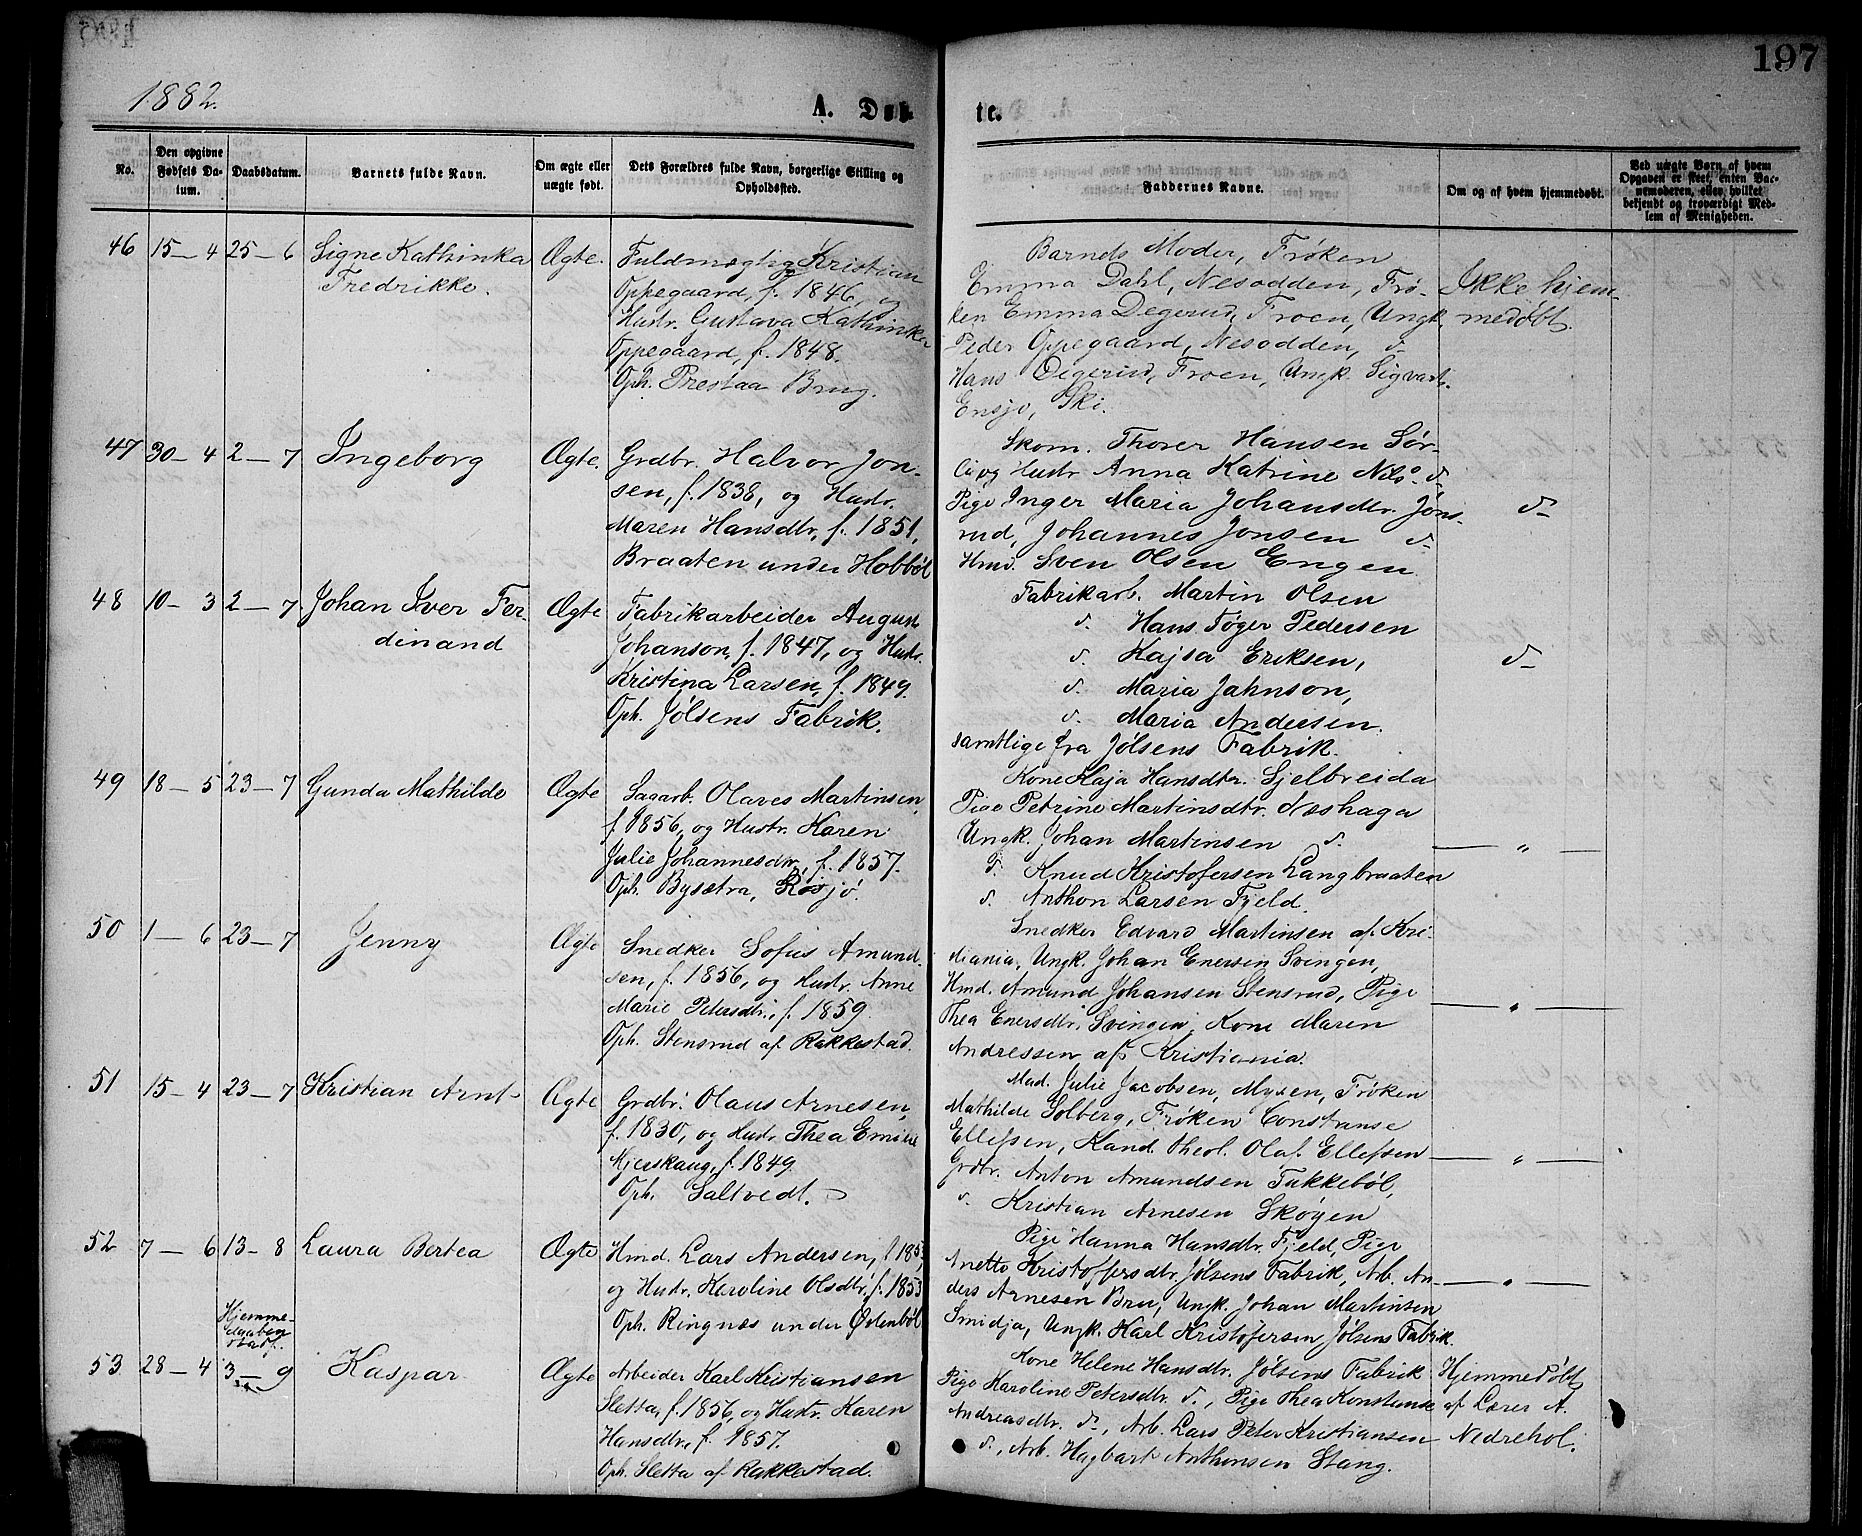 197
1882.
A. Døb-
te.
No.
Den opgivne Fødsels Datum.
Daabsdatum.
Barnets fulde Navn.
Om ægte eller uægte født.
Dets Forældres fulde Navn, borgerlige Stilling og Opholdssted.
Faddernes Navne.
Om og af hvem hjemmedøbt.
Ved uægte Børn, af hvem Opgaven er skeet, enten Barnemoderen, eller hvilket bekjendt og troværdigt Medlem af Menigheden.
46 15-4 25-6 Signe Kathinka
Fredrikke.
Ægte.
Fuldmægtig Kristian
Oppegaard, f. 1846, og
Hustr. Gustava Kathinka
Oppegaard, f. 1848.
Oph. Prestaa Brug.
Barnets Moder, Frøken
Emma Dahl, Nesodden, Frø-
ken Emma Degerud, Froen, Ungk.
Peder Oppegaard, Nesodden, d-
Hans Degerud, Froen, Ungk. Sigvart
Ensjø, Ski.
Ikke hjem-
medøbt.
47 30-4 2-7 Ingeborg
Ægte.
Grdbr. Halvor Jon-
sen, f. 1838, og Hustr.
Maren Hansdtr, f. 1851,
Braaten under Hobbøl
Skom. Thorer Hansen Sør-
li og Hustr Anna Katrine Nils- d-
Pige Inger Maria Johansdtr. Jøns-
rud, Johannes Jonsen d-
Hmd. Sven Olsen Engen
d-
48 10-3 2-7 Johan Iver Fer-
dinand
Ægte
Fabrikarbeider August
Johanson, f. 1847, og Hustr.
Kristina Larsen, f. 1849.
Oph. Jølsens Fabrik.
Fabrikarb. Martin Olsen
d. Hans Tøger Pedersen
d. Kajsa Eriksen,
d. Maria Jahnson,
d. Maria Andersen.
samtlige fra Jølsens Fabrik.
d-
49 18-5 23-7 Gunda Mathilde
Ægte
Sagarb. Olaves Martinsen
f. 1856, og Hustr. Karen
Julie Johannesdtr, f. 1857.
Oph. Bysætra, Røsjø.
Kone Kaja Hansdtr. Sjelbreida
Pige Petrine Martinsdtr. Næshaga
Ungk. Johan Martinsen d.
d. Knud Kristofersen Langbraaten
d. Anthon Larsen Fjeld.
— " —
50 1-6 23-7 Jenny
Ægte
Snedker Sofus Amund-
sen, f. 1856, og Hustr. Anne
Marie Petersdtr., f. 1859.
Oph. Stensrud af Rakkestad.
Snedker Edvard Martinsen af Kri-
stiania, Ungk. Johan Enersen Svingen,
Hmd. Amund Johansen Stensrud, Pige
Thea Enersdtr. Svingen, Kone Maren
Andressen af Kristiania.
— " —
51 15-4 23-7 Kristian Arnt
Ægte
Grdbr. Olaus Arnesen,
f. 1830, og Hustr. Thea Emilie
Kjerskaug, f. 1849.
Oph. Saltvedt.
Mad. Julie Jacobsen, Mysen, Frøken
Mathilde Solberg, Frøken Constanse
Ellefsen, Kand. theol. Olaf Ellefsen
Grdbr. Anton Amundsen Tukkebøl,
d. Kristian Arnesen Skøyen
— " —
52 7-6 13-8 Laura Bertea
Ægte
Hmd. Lars Andersen, f 185
og Hustr. Karoline Olsdtr, f. 1853
Oph. Ringnæs under Ødenbøl
Pige Hanna Hansdtr. Fjeld, Pige
Anette Kristoffersdtr. Jølsens Fabrik, Arb. An-
ders Arnesen Bru, Ungk. Johan Martinsen
Smidja, Ungk. Karl Kristofersen Jølsens Fabrik.
— " —
Hjemme-
daaben
stadf.
53 28-4 3-9 Kaspar
Ægte
Arbeider Karl Kristiansen
Sletta, f. 1856, og Hustr. Karen
Hansdtr, f. 1857.
Oph. Sletta af Rakkestad.
Kone Helene Hansdtr. Jølsens Fabrik
Pige Karoline Petersdtr. d., Pige Thea Konstanse
Andreasdtr. d., Arb. Lars Peter Kristiansen
d., Arb. Hagbart Anthonsen Stang.
Hjemmedøbt
af Lærer A.
Nedrehol.